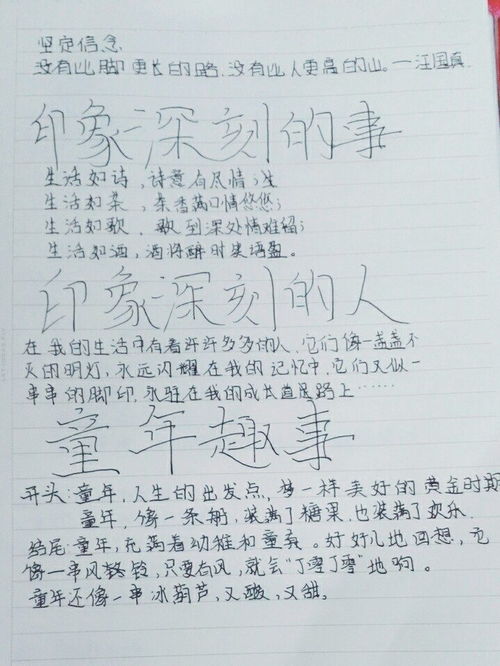 坚定信念
没有比脚更长的路,没有比人更高的山。—汪国真
印象深刻的事
生活如诗,诗意有尽情;生
生活如茶,茶香满口情悠悠;
生活如歌,歌到深处情难留;
生活如酒,酒将醉时笑语盈。
印象深刻的人
在我的生活中有着许许多多的人,它们像一盏盏不
灭的明灯,永远闪耀在我的记忆中,它们又似一
串串的脚印,永驻在我的成长道路上……
童年趣事
开头:童年,人生的出发点,梦一样美好的黄金时期
童年,像一条船,装满了糖果,也装满了欢乐.
结尾:童年,充满着幼稚和童真。好好儿地回想,它
像一串风铃,只要有风,就会"丁零丁零"地响。
童年还像一串冰葫芦,又酸,又甜。